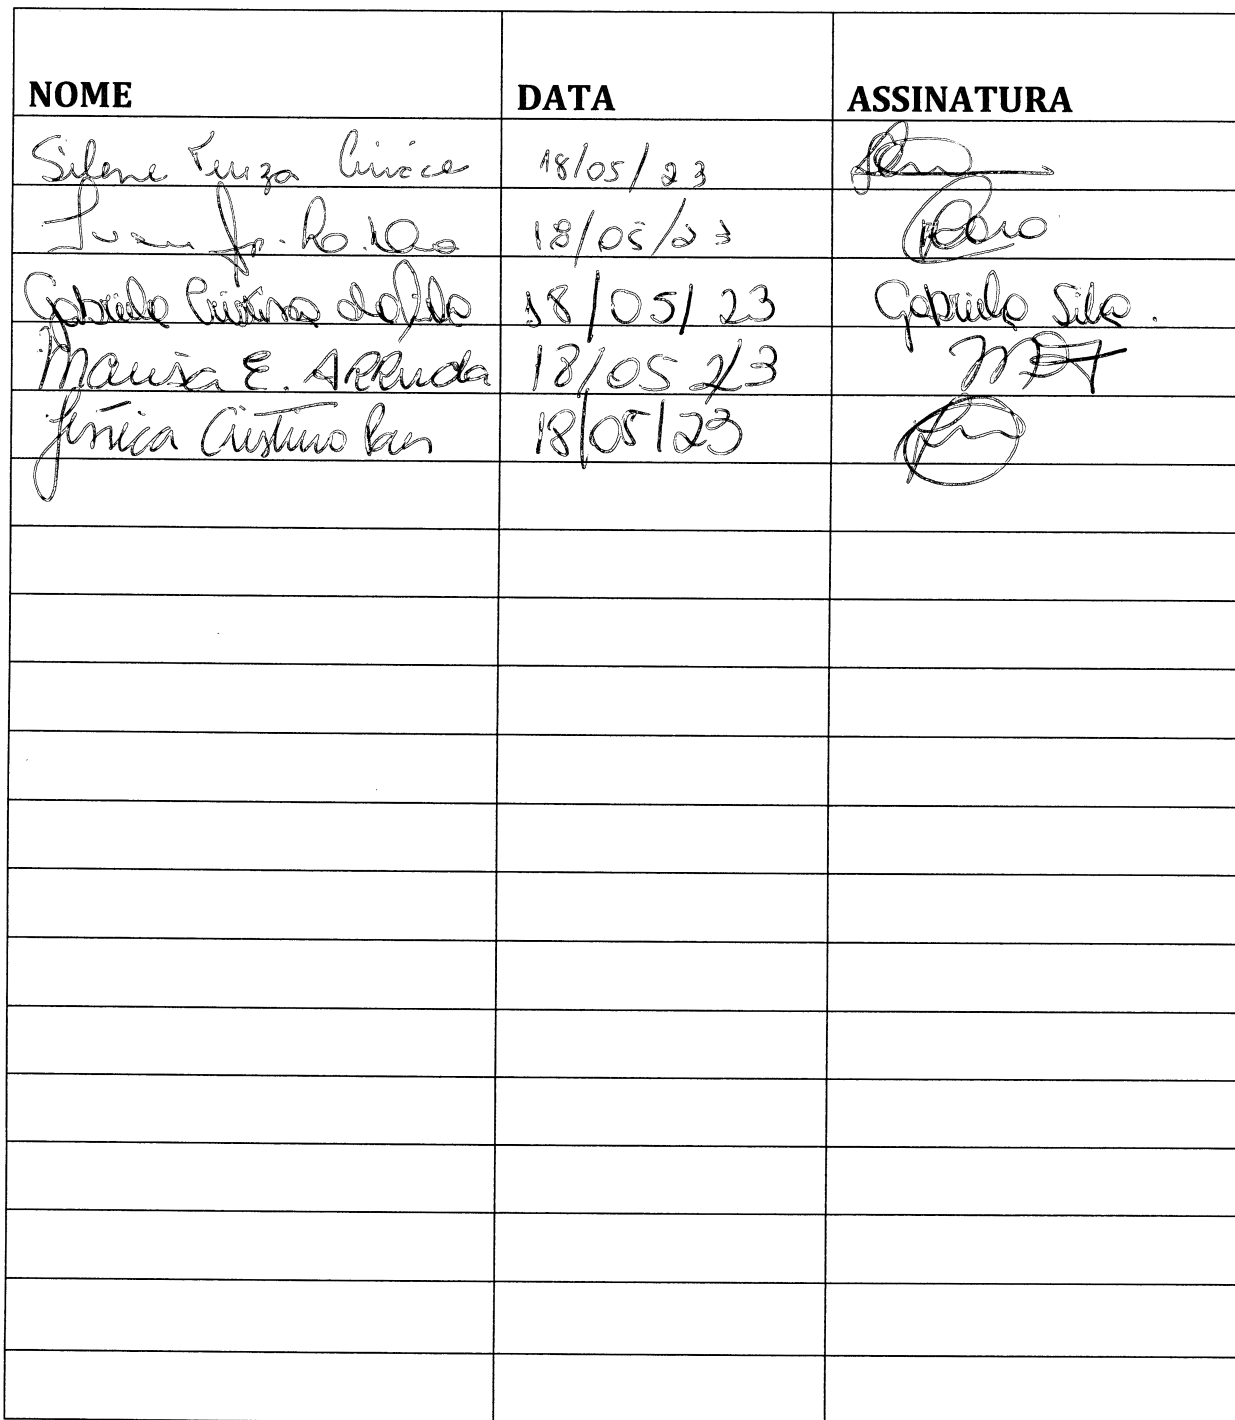 NOME DATA ASSINATURA
Silene 18/05/23
18/05/23
Gabriela Cristina da Silva 18/05/23 Gabriela Silva.
Marisa E. ARRuda 18/05/23
Jéssica Cristina 18/05/23